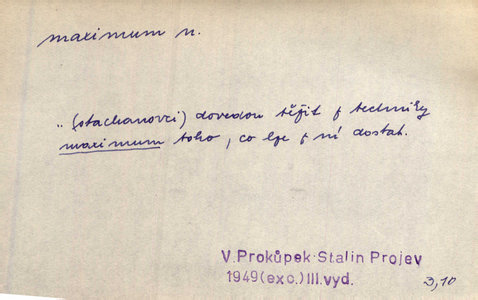 maximum n.
„ (stachanovci) dovedou těžit z techniky
maximum toho, co lze z ní dostat.
V. Prokůpek·Stalin Projev
1949(exc.) III. vyd.
3,10